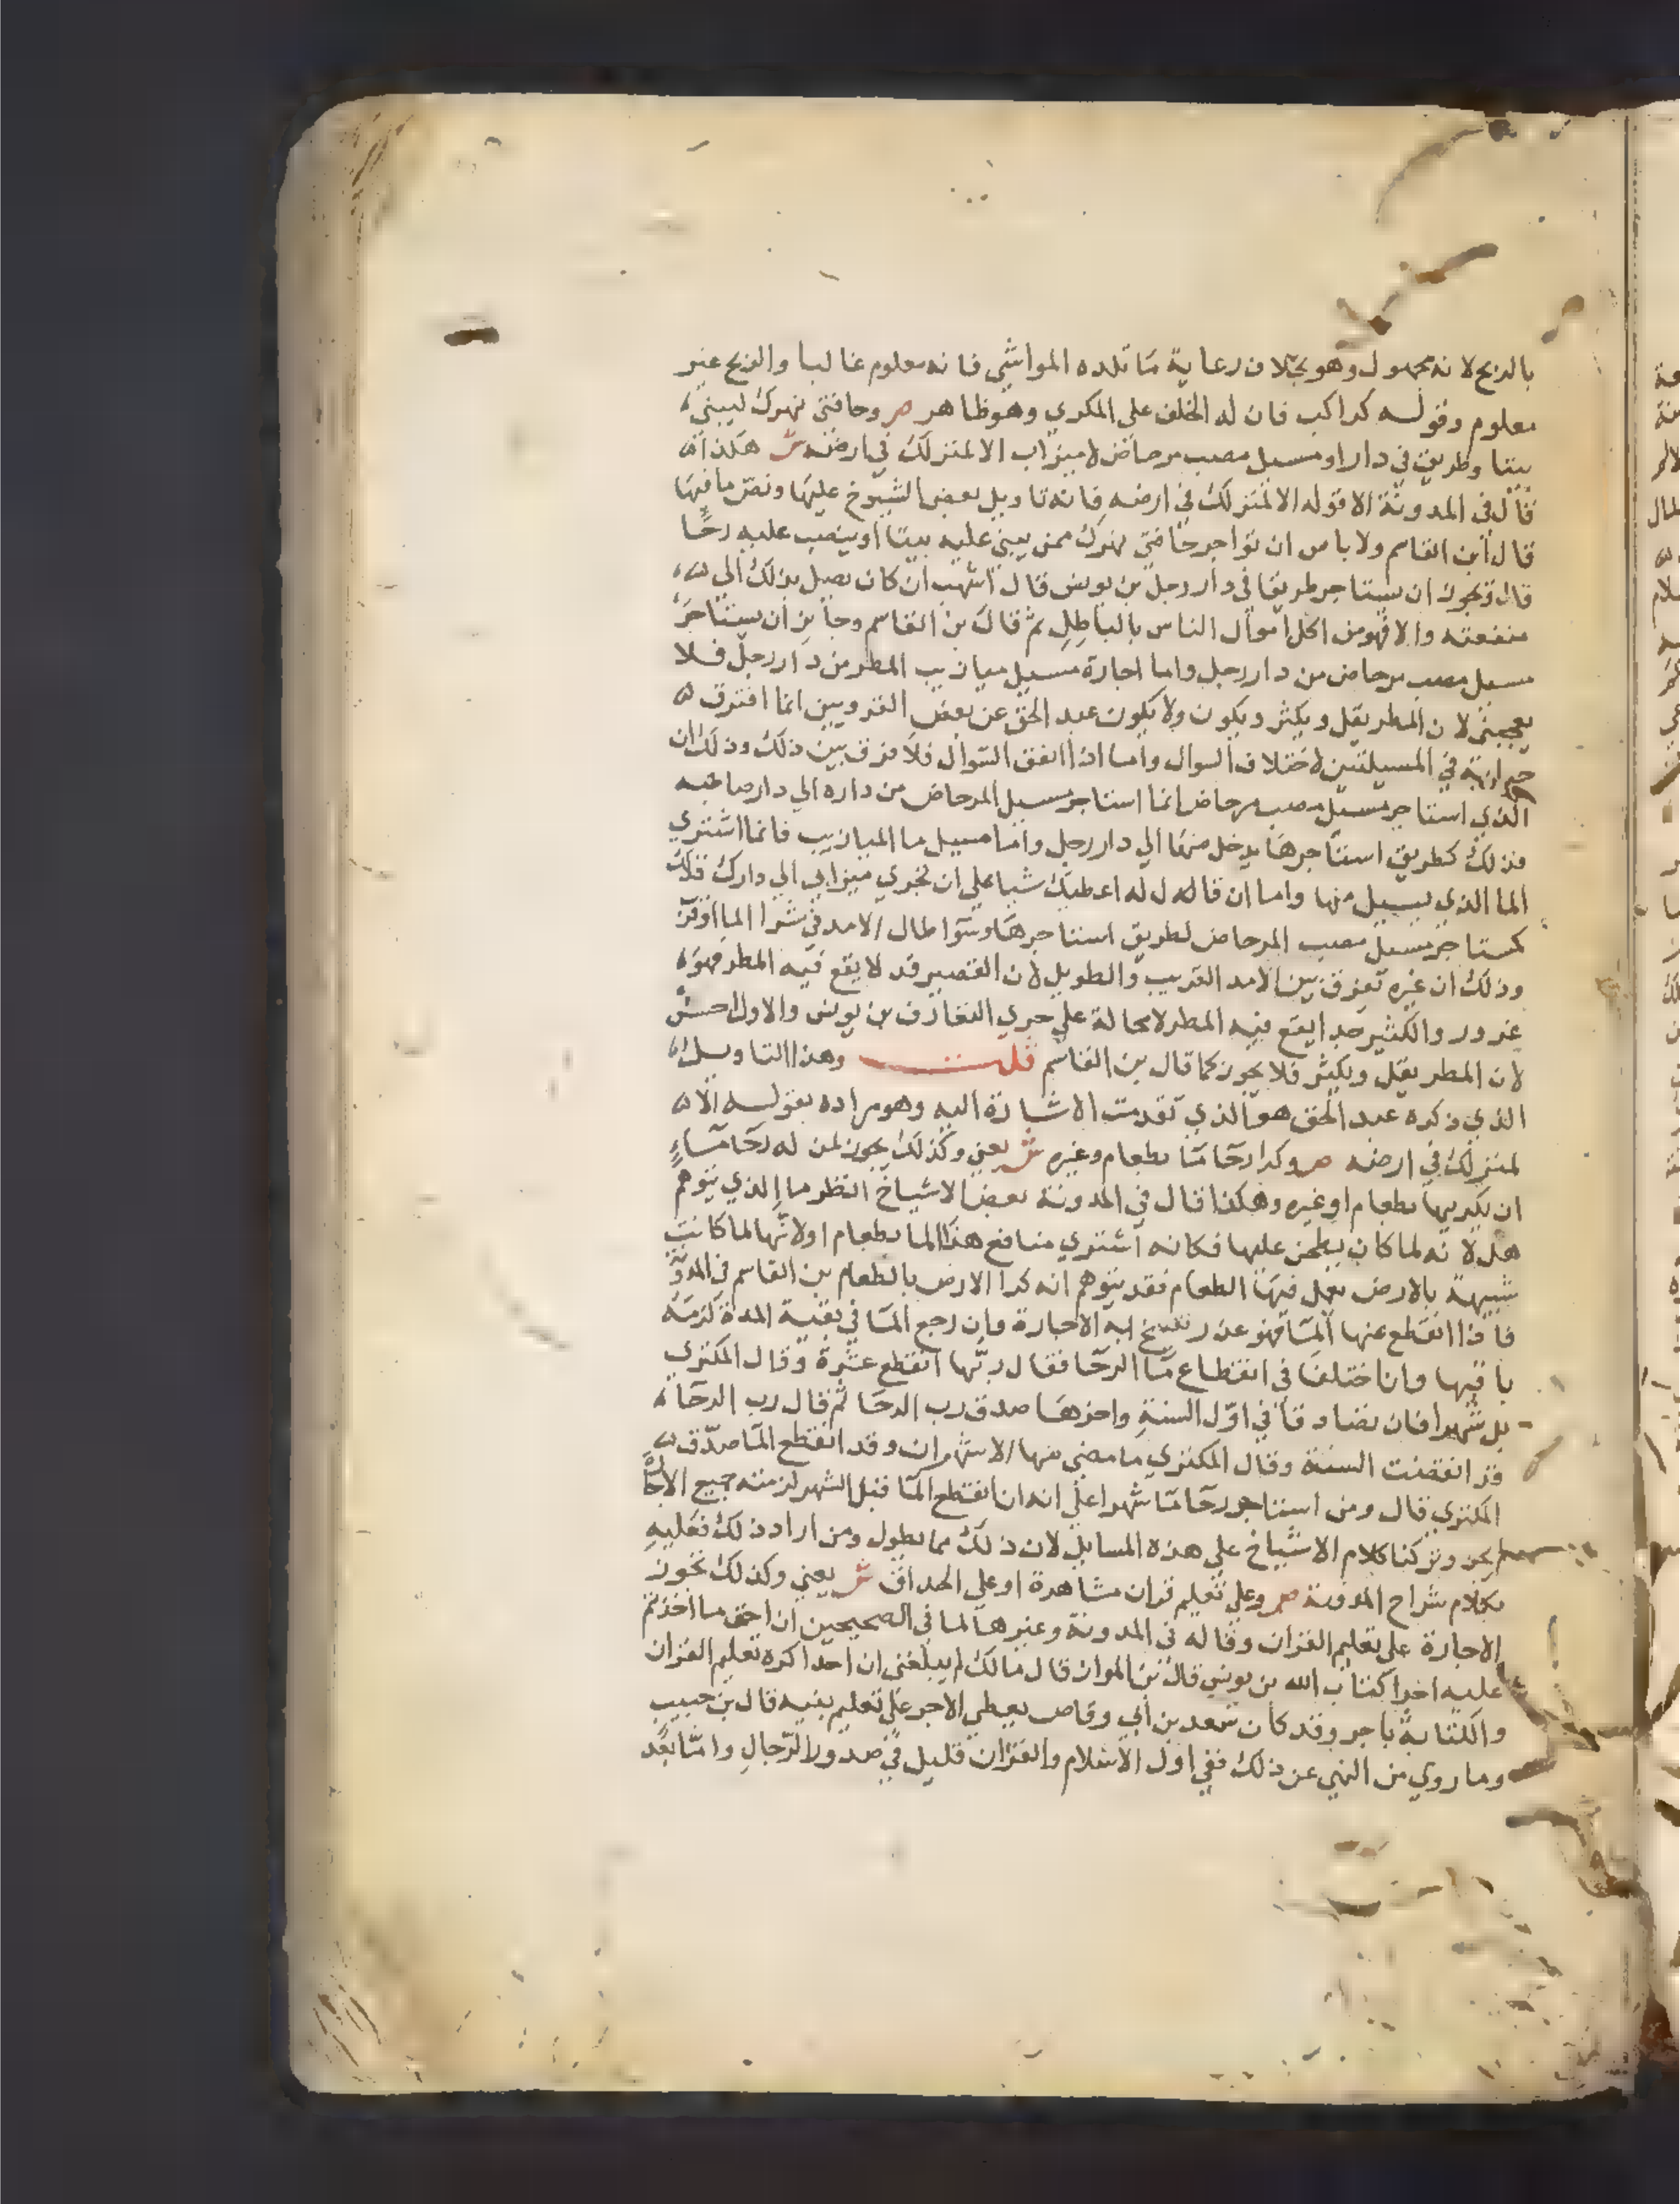 بالربح لانه مجهول وهو بخلاف رعاية ما تلده المواشي فانه معلوم غالبا والربح غير
معلوم وقوله كراكب فان له الخلف على المكري وهو ظاهر ص وحافتي نهرك ليبني
بيتا وطريق في دار او مسيل مصب مرحاض لا ميزاب الا لمنزلك في ارضه ش هكذا
قال في المدونة الا قوله الا لمنزلك في ارضه فانه تاويل بعض الشيوخ عليها ونص ما فيها
قال ابن القاسم ولا باس ان تواجر حافتي نهرك ممن يبني عليه بيتا او ينصب عليه رحا
قال ويجوز ان يستاجر طريقا في دار رجل بن يونس قال اشهب ان كان يصل بذلك الى
منفعته والا فهو من اكل اموال الناس بالباطل ثم قال بن القاسم وجايز ان يستاجر
مسيل مصب مرحاض من دار رجل واما اجارة مسيل ميازيب المطر من دار رجل فلا
يعجبني لان المطر يقل ويكثر ويكون ولا يكون عبد الحق عن بعض القرويين انما افترق
جوابه في المسيلتين لاختلاف السوال واما اذا اتفق السوال فلا فرق بين ذلك وذلك ان
الذي استاجر مسيل مصب مرحاض انما استاجر مسيل المرحاض من داره الى دار صاحبه
فذلك كطريق استاجرها يدخل منها الى دار رجل واما مسيل ما الميازيب فانما اشتري
الما الذي يسيل منها واما ان قاله ل له اعطيك شيا على ان تجري ميزابي الى دارك فذلك
كمستاجر مسيل مصب المرحاض لطريق استاجرها وسوا طال الامد في شرا الما او قرب
وذلك ان غيره تفرق بين الامد القريب والطويل لان القصير قد لا يقع فيه المطر فهو
غرور والكثير جدا يقع فيه المطر لا محالة على جري التعارف بن يونس والاول احسن
لان المطر يقل ويكثر فلا يجوز كما قال بن القاسم قلت وهذا التاويل
الذي ذكره عبد الحق هو الذي تقدمت الاشارة اليه وهو مراده بقوله الا
لمنزلك في ارضه ص وكرا رحا ما بطعام وغيره ش يعني وكذلك يجوز لمن له رحا ماء
ان يكريها بطعام او غيره وهكذا قال في المدونة بعض الاشياخ انظر ما الذي يتوهم
هل لانه لما كان يطحن عليها فكانه اشتري منافع هذا الما بطعام او لانها لما كانت
شبيهة بالارض يعمل فيها الطعام فقد يتوهم انه كرا الارض بالطعام بن القاسم في المدونة
فاذا انقطع عنها الما فهو عذر تفسخ به الاجارة وان رجع الما في بقية المدة لزمه
باقيها وان اختلفا في انقطاع ما الرحا فقال ربها انقطع عشرة وقال المكتري
بل شهرا فان تصادقا في اول السنة واخرها صدق رب الرحا ثم قال رب الرحا
قد انقضت السنة وقال المكتري ما مضى منها الا شهران وقد انقطع الما صدق
المكتري قال ومن استاجر رحا ما شهرا على انه ان انقطع الما قبل الشهر لزمته جميع الاجارة
لم يجز وتركنا كلام الاشياخ على هذه المسايل لان ذلك مما يطول ومن اراد ذلك فعليه
بكلام شراح المدونة ص وعلى تعليم قران مشاهرة او على الحذاق ش يعني وكذلك تجوز
الاجارة على تعليم القران وقاله في المدونة وغيرها لما في الصحيحين ان احق ما اخذتم
عليه اجرا كتاب الله بن يونس قال بن المواز قال مالك لم يبلغني ان احدا كره تعليم القران
والكتابة باجر وقد كان سعد بن ابي وقاص يعطي الاجر على تعليم بنيه قال بن حبيب
وما روي من النهي عن ذلك ففي اول الاسلام والقران قليل في صدور الرجال واما بعد